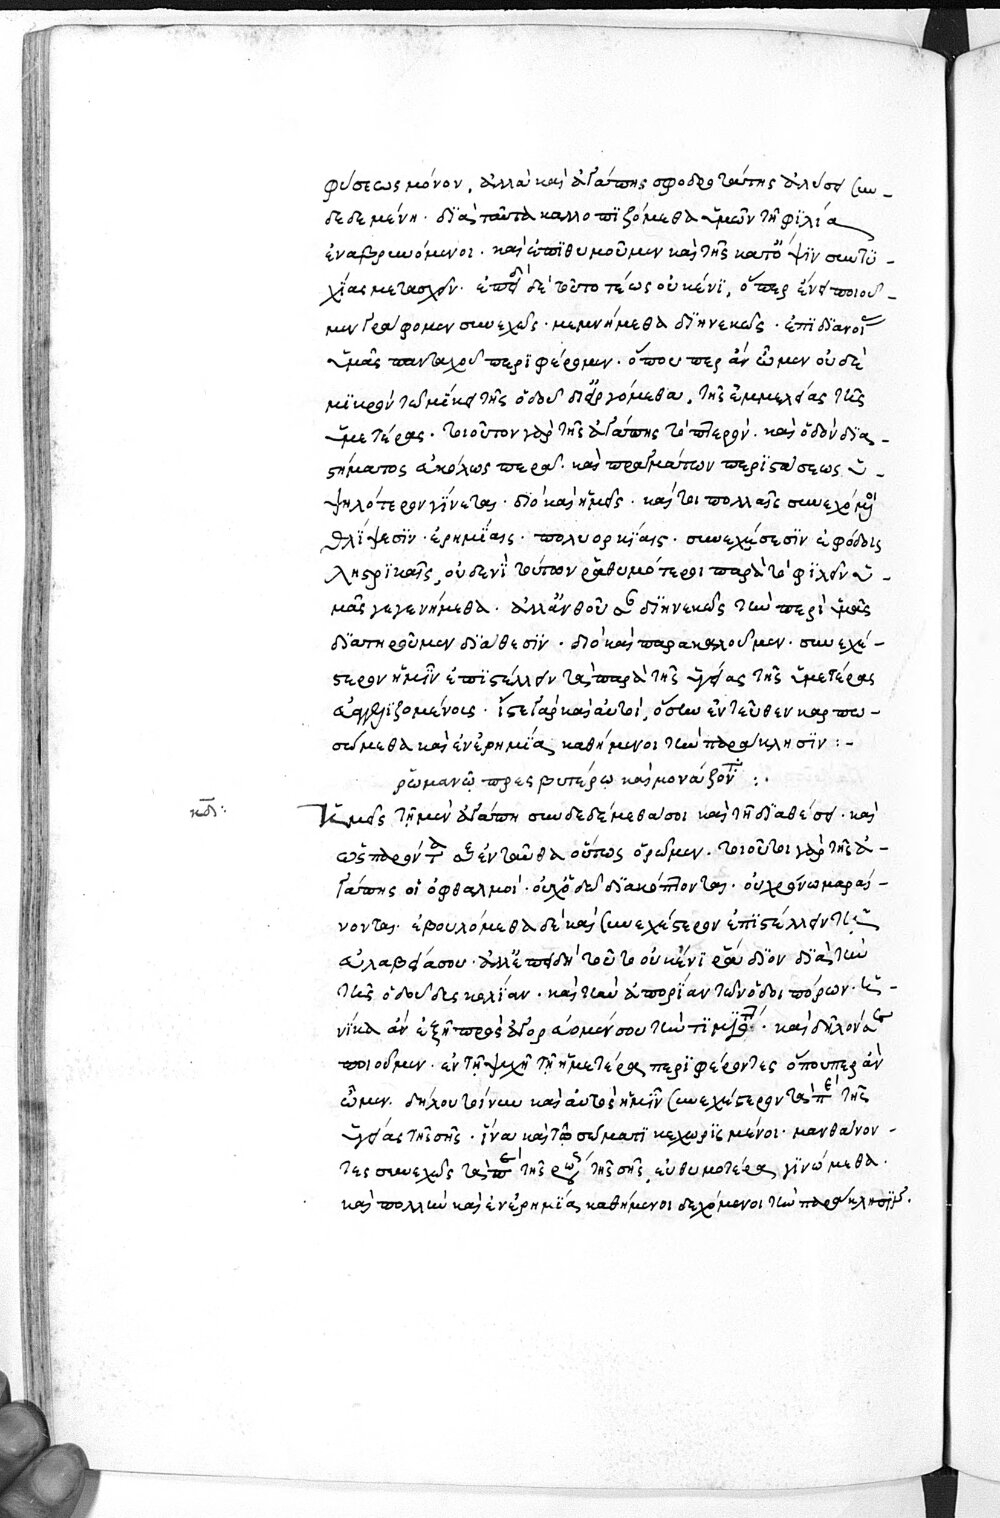 φύσεως μόνον, ἀλλὰ καὶ ἀγάπης σφοδροτάτης ἀλύσει συν-
δεδεμένη· διὰ ταῦτα καλλοπιζόμεθα ὑμῶν τῇ φιλία
ἐναβρυνόμενοι· καὶ ἐπιθυμοῦμεν καὶ τῆς κατ' ὄψιν συντυ-
χίας μετασχεῖν· ἐπειδὴ δὲ τοῦτο τέως οὐκ ἔνι, ὅπερ ἔνεστι ποιοῦ-
μεν γράφομεν συνεχῶς· μεμνήμεθα διηνεκῶς· ἐπὶ διανοί
ὑμᾶς πανταχοῦ περιφέρομεν· ὅπου περ ἂν ὦμεν οὐδὲ
μικρὸν τῷ μήκει τῆς ὁδοῦ διειργόμεθα, τῆς ἐμμελείας τῆς
ὑμετέρας· τοιοῦτον γὰρ τῆς ἀγάπης τὸ πτερόν· καὶ ὁδὸν δια-
στήματος εὐκόλως περᾶ· καὶ πραγμάτων περιστάσεως ὑ-
ψηλότερον γίνεται· διὸ καὶ ἡμεῖς· καί τοι πολλαῖς συνεχόμενοι
θλίψεσιν· ἐρημίαις· πολυορκίαις· συνεχέσεσιν ἐφόδοις
ληστρικαῖς, οὐδενὶ τούτων ῥαθυμότεροι παρὰ τὸ φιλεῖν ὑ-
μᾶς γεγενήμεθα· ἀλλ' ἀνθοῦσαν διηνεκῶς τὴν περὶ ὑμᾶς
διατηροῦμεν διάθεσιν· διὸ καὶ παρακαλοῦμεν· συνεχέ-
στερον ἡμῖν ἐπιστέλλειν τὰ παρὰ τῆς ὑγείας τῆς ὑμετέρας
εὐαγγελιζομένοις· ἴστε γὰρ καὶ αὐτοί, ὅσην ἐντεῦθεν καρπω-
σώμεθα καὶ ἐν ἐρημία καθήμενοι τὴν παράκλησιν :-
ῥωμανῷ πρεσβυτέρω καὶ μονάζοντι :·
κδ:
Ἡμεῖς τῇ μὲν ἀγάπη συνδεδέμεθά σοι καὶ τῇ διαθέσει· καὶ
ὡς παρόντα σε ἐνταῦθα οὕτως ὁρῶμεν· τοιοῦτοι γὰρ τῆς ἀ-
γάπης οἱ ὀφθαλμοί· οὐχ ὁδῷ διακόπτονται· οὐ χρόνω μαραί-
νονται· ἐβουλόμεθα δὲ καὶ συνεχέστερον ἐπιστέλλειν τῇ
εὐλαβεία σου· ἀλλ' ἐπειδὴ τοῦτο οὐκ ἔνι ῥάδιον διὰ τὴν
τῆς ὁδοῦ δυσκολίαν· καὶ τὴν ἀπορίαν τῶν ὁδοιπόρων· ἡ-
νίκα ἂν ἐξῇ προσἀγορεύομέν σου τὴν τιμιότητα· καὶ δῆλον ἀεὶ
ποιοῦμεν· ἐν τῇ ψυχῇ τῇ ἡμετέρα περιφέροντες ὅπουπερ ἂν
ὦμεν· δήλου τοίνυν καὶ αὐτὸς ἡμῖν συνεχέστερον τὰ περὶ τῆς
ὑγείας τῆς σῆς· ἵνα κἂν τῷ σώματι κεχωρισμένοι· μανθάνον-
τες συνεχῶς τὰ περὶ τῆς ῥώσεως τῆς σῆς, εὐθυμότεροι γινώμεθα·
καὶ πολλὴν καὶ ἐν ἐρημία καθήμενοι δεχόμενοι τὴν παράκλησιν·